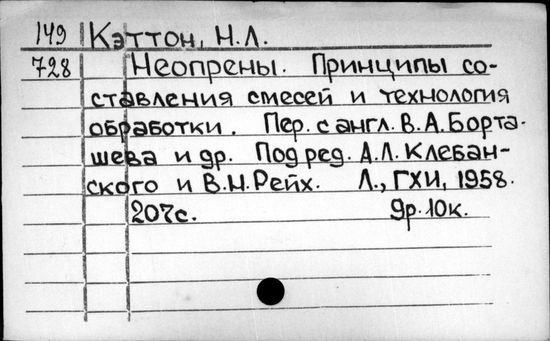 149 Кэттон, Н.Л.
728 Неопрены. Принципы со-
ставления смесей и технология
обработки. Пер. с англ. В.А.Борта-
шева и др. Под ред. А.Л.Клебан-
ского и В.Н.Рейх. Л., ГХИ, 1958.
207с. 9р.10к.